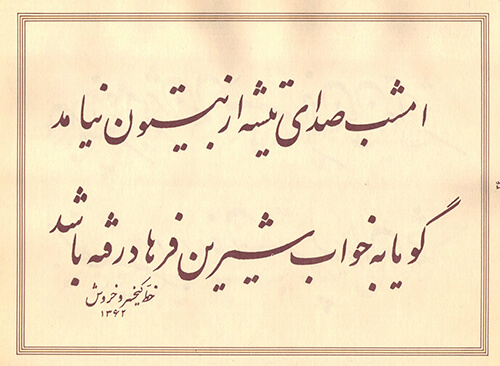 امشب صدای تیشه از بیستون نیامد
گویا به خواب شیرین فرهاد رفته باشد
خط کیخسرو خروش
۱۳۶۲